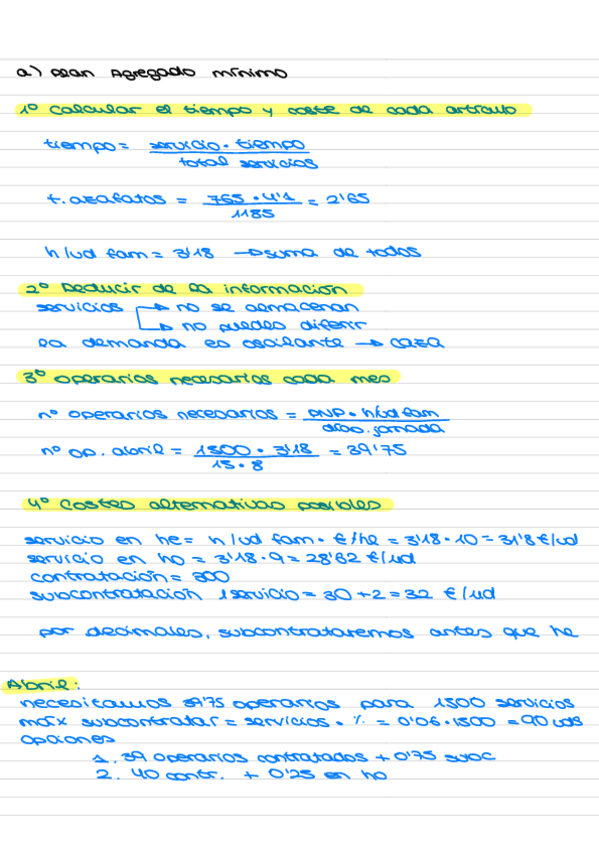 a) Plan Agregado mínimo
1º Calcular el tiempo y coste de cada artículo
tiempo = servicio · tiempo / total servicios
t. azafatos = 765 · 4'1 / 1185 = 2'65
h/ud fam = 3'18 → suma de todos
2º Deducir de la información
servicios → no se almacenan
→ no puedes diferir
la demanda es oscilante → caza
3º operarios necesarios cada mes
nº operarios necesarios = PNP · h/ud fam / días. jornada
nº op. abril = 1500 · 3'18 / 15 · 8 = 39'75
4º Costes alternativas posibles
servicio en he = h/ud fam · €/he = 3'18 · 10 = 31'8 €/ud
servicio en ho = 3'18 · 9 = 28'62 €/ud
contratación = 300
subcontratación 1 servicio = 30 + 2 = 32 €/ud
por decimales, subcontrataremos antes que he
Abril:
necesitamos 39'75 operarios para 1500 servicios
máx subcontratar = servicios · % = 0'06 · 1500 = 90 uds
opciones
1. 39 operarios contratados + 0'75 subc
2. 40 contr. + 0'25 en ho